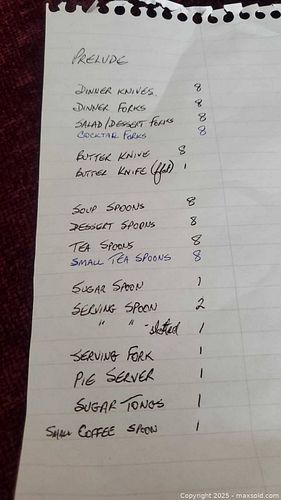 PRELUDE
DINNER KNIVES 8
DINNER FORKS 8
SALAD/DESSERT FORKS 8
COCKTAIL FORKS 8
BUTTER KNIVE 8
BUTTER KNIFE 1
SOUP SPOONS 8
DESSERT SPOONS 8
TEA SPOONS 8
SMALL TEA SPOONS 8
SUGAR SPOON 1
SERVING SPOON 2
" " -slotted 1
SERVING FORK 1
PIE SERVER 1
SUGAR TONGS 1
SMALL COFFEE SPOON 1
Copyright 2025 - maxsold.com